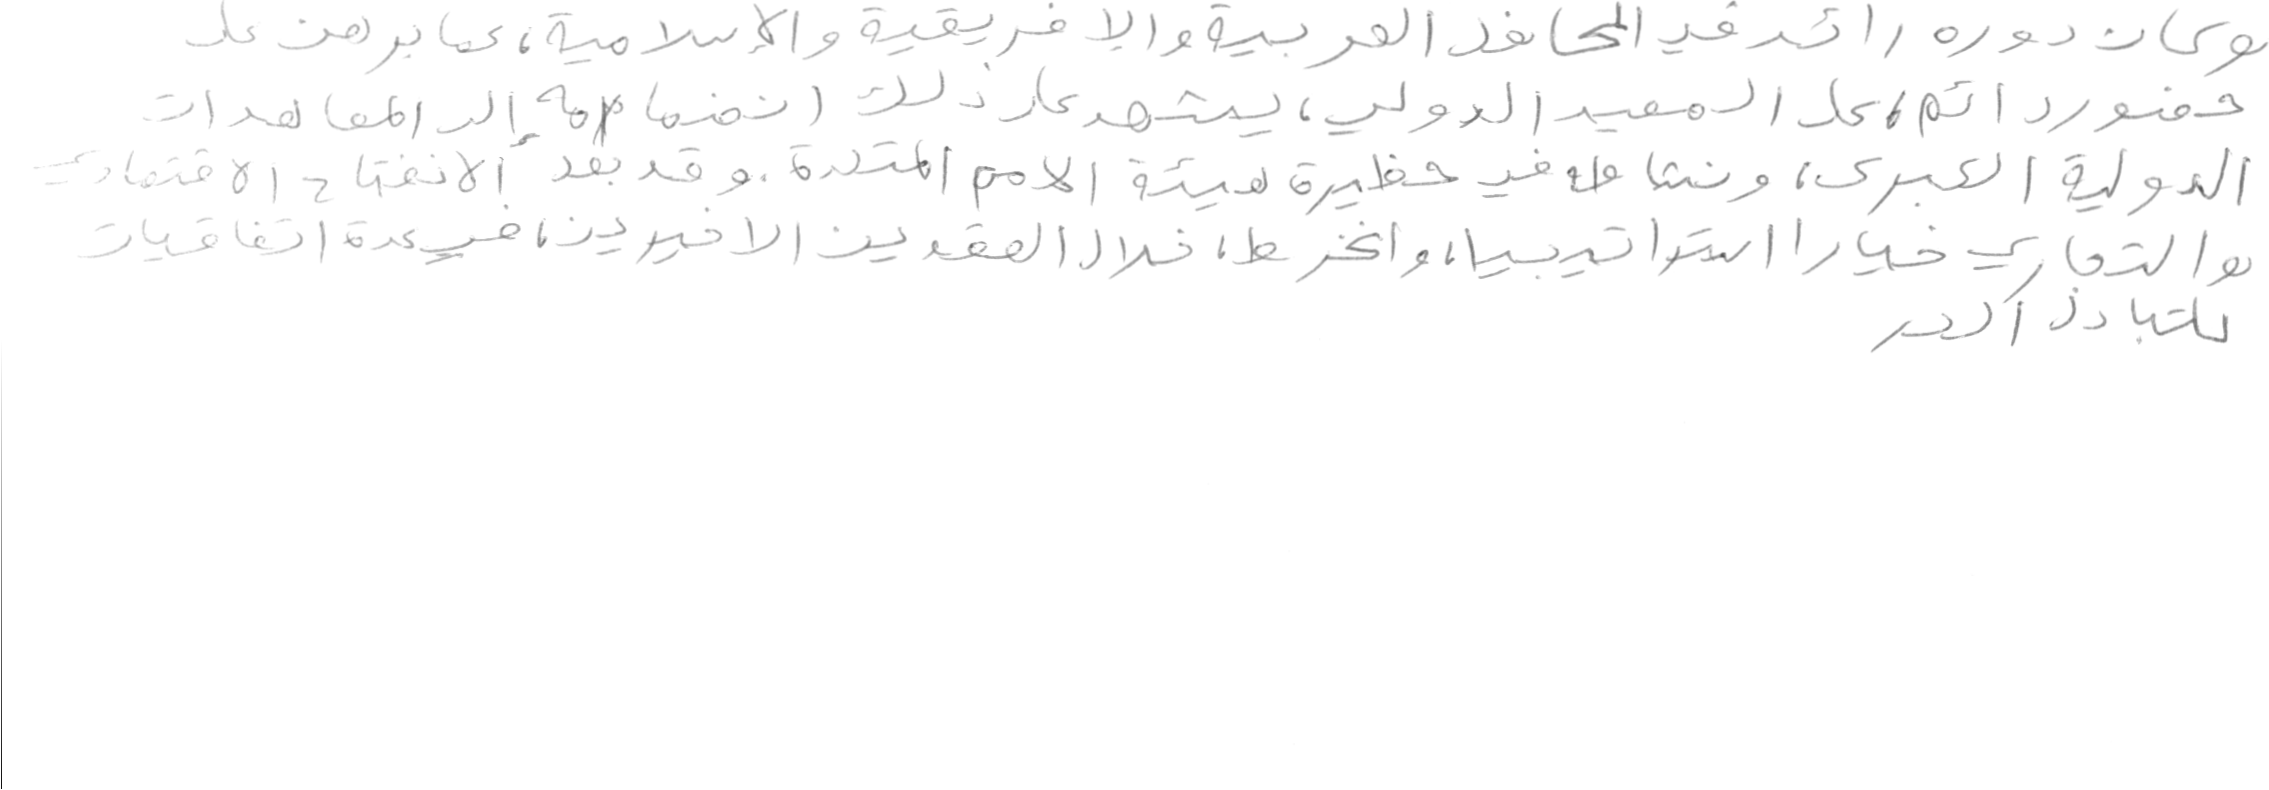 وكان دوره رائد في المحافل العربية والإفريقية والإسلامية، كما برهن على
حضور دائم، على الصعيد الدولي، يشهد على ذلك انضمامه إلى المعاهدات
الدولية الكبرى، ونشاطه في حظيرة هيئة الامم المتحدة. وقد يعد الانفتاح الاقتصادي
والتجاري خيارا استراتيجيا، وانخرط، خلال العقدين الاخيرين، في عدة اتفاقيات
للتبادل الحر